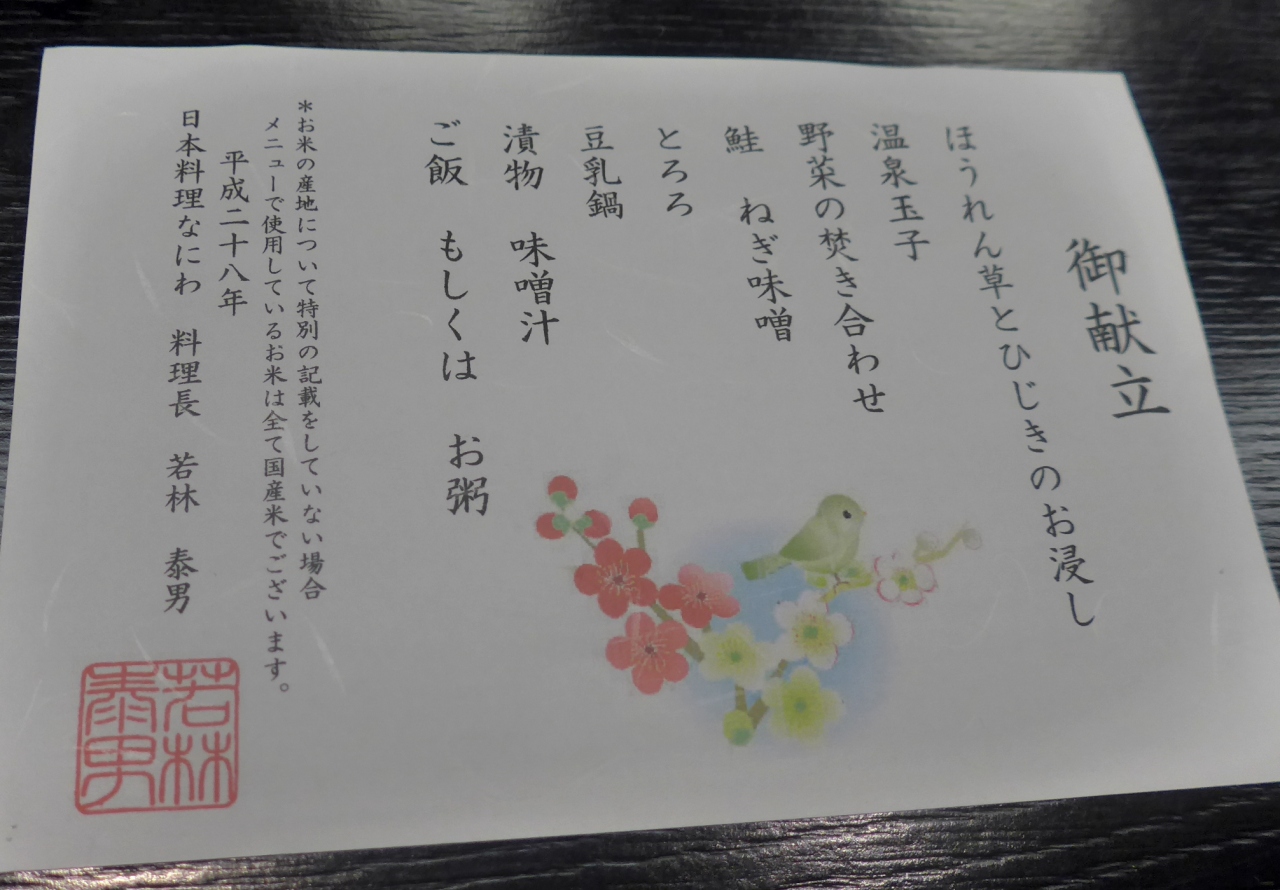 御献立
ほうれん草とひじきのお浸し
温泉玉子
野菜の焚き合わせ
鮭　ねぎ味噌
とろろ
豆乳鍋
漬物　味噌汁
ご飯　もしくは　お粥
＊お米の産地について特別の記載をしていない場合
メニューで使用しているお米は全て国産米でございます。
平成二十八年
日本料理なにわ　料理長　若林　泰男
若林
泰男